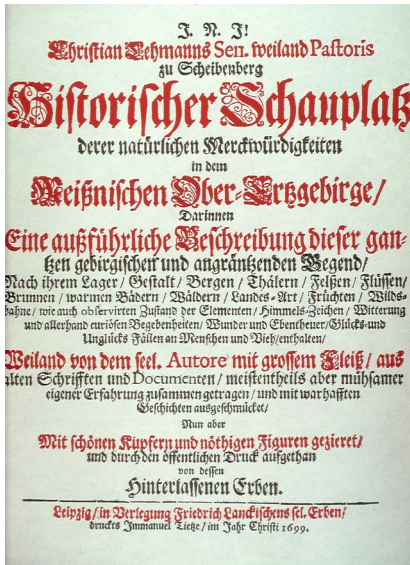 J. N. J!
Christian Lehmanns Sen. weiland Pastoris
zu Scheibenberg
Historischer Schauplatz
derer natürlichen Merckwürdigkeiten
in dem
Meißnischen Ober-Ertzgebirge/
Darinnen
Eine außführliche Beschreibung dieser gan-
tzen gebirgischen und angräntzenden Gegend/
Nach ihrem Lager/ Gestalt/ Bergen/ Thälern/ Felßen/ Flüssen/
Brunnen/ warmen Bädern/ Wäldern/ Landes-Art/ Früchten/ Wilds-
bahne/ wie auch observirten Zustand der Elementen/ Himmels-Zeichen/ Witterung
und allerhand curiösen Begebenheiten/ Wunder und Ebentheuer/ Glücks- und
Unglücks Fällen an Menschen und Vieh/ enthalten/
Weiland von dem seel. Autore mit grossem Fleiß/ aus
alten Schrifften und Documenten/ meistentheils aber mühsamer
eigener Erfahrung zusammen getragen/ und mit warhafften
Geschichten ausgeschmücket/
Nun aber
Mit schönen Kupfern und nöthigen Figuren gezieret/
und durch den öffentlichen Druck aufgethan
von dessen
Hinterlassenen Erben.
Leipzig/ in Verlegung Friedrich Lanckischens sel. Erben/
druckts Immanuel Tietze/ im Jahr Christi 1699.